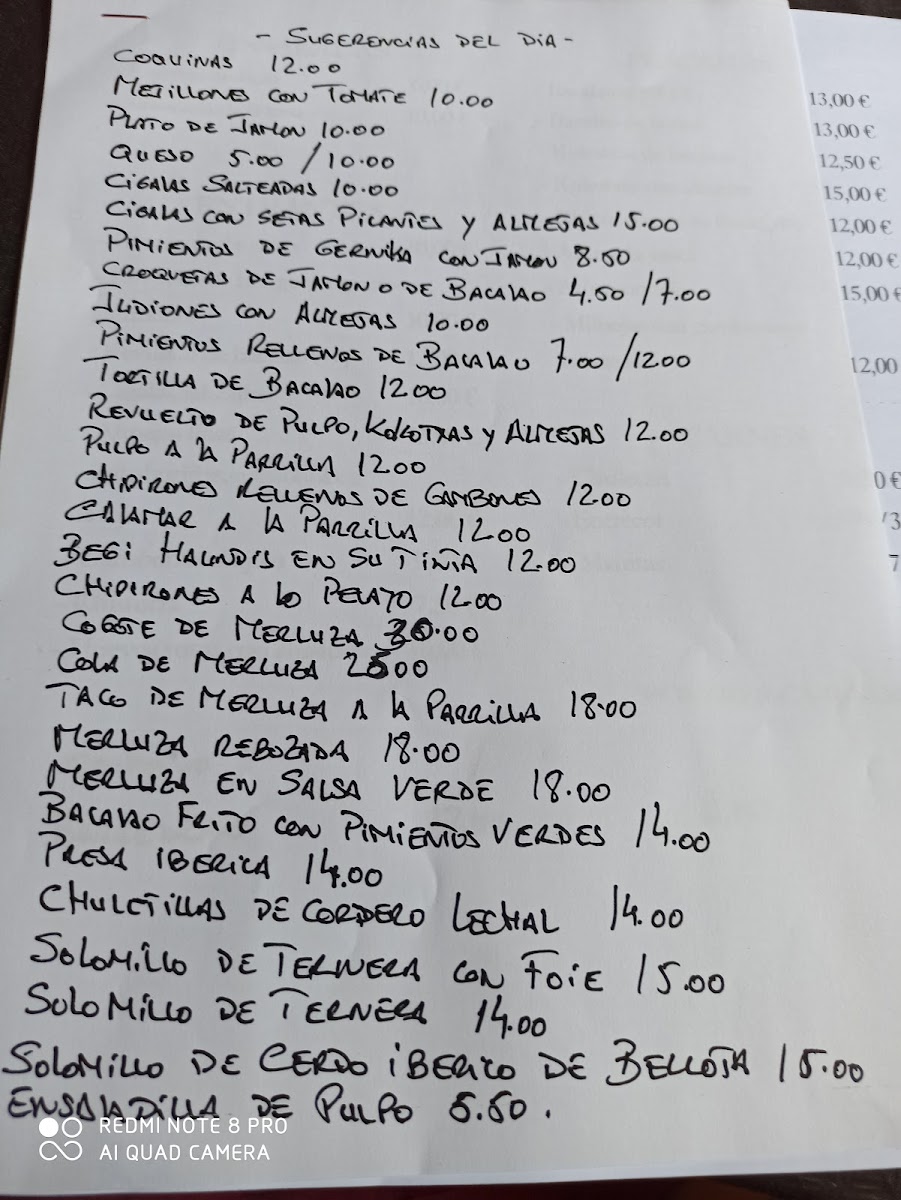 - SUGERENCIAS DEL DIA -
COQUINAS 12.00
MEJILLONES CON TOMATE 10.00
PLATO DE JAMON 10.00
QUESO 5.00 / 10.00
CIGALAS SALTEADAS 10.00
CIGALAS CON SETAS PICANTES Y ALMEJAS 15.00
PIMIENTOS DE GERNIKA CON JAMON 8.50
CROQUETAS DE JAMON O DE BACALAO 4.50 / 7.00
JUDIONES CON ALMEJAS 10.00
PIMIENTOS RELLENOS DE BACALAO 7.00 / 12.00
TORTILLA DE BACALAO 12.00
REVUELTO DE PULPO, KOKOTXAS Y ALMEJAS 12.00
PULPO A LA PARRILLA 12.00
CHIPIRONES RELLENOS DE GAMBONES 12.00
CALAMAR A LA PARRILLA 12.00
BEGI HAUNDIS EN SU TINTA 12.00
CHIPIRONES A LO PELAYO 12.00
COGOTE DE MERLUZA 30.00
COLA DE MERLUZA 25.00
TACO DE MERLUZA A LA PARRILLA 18.00
MERLUZA REBOZADA 18.00
MERLUZA EN SALSA VERDE 18.00
BACALAO FRITO CON PIMIENTOS VERDES 14.00
PRESA IBERICA 14.00
CHULETILLAS DE CORDERO LECHAL 14.00
SOLOMILLO DE TERNERA CON FOIE 15.00
SOLOMILLO DE TERNERA 14.00
SOLOMILLO DE CERDO IBERICO DE BELLOTA 15.00
ENSALADILLA DE PULPO 5.50.
13,00 €
13,00 €
12,50 €
15,00 €
12,00 €
12,00 €
15,00 €
12,00
0 €
/3
7
REDMI NOTE 8 PRO
AI QUAD CAMERA